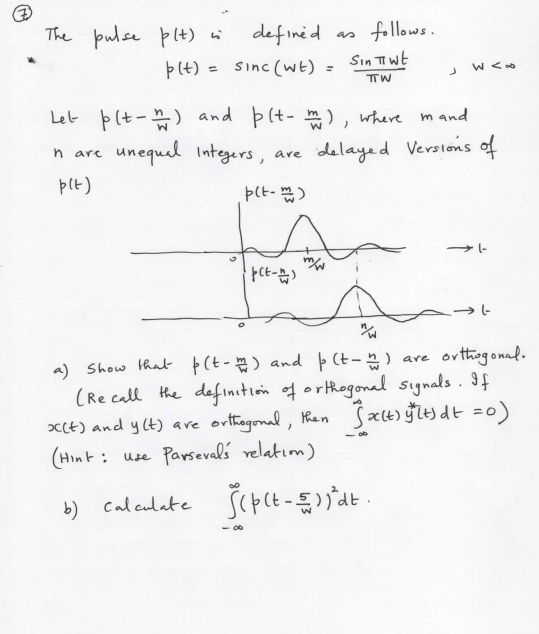 7
The pulse p(t) is defined as follows.
p(t) = sinc(wt) = Sin πwt / πw , w < ∞
Let p(t - n/w) and p(t - m/w), where m and
n are unequal Integers, are delayed Versions of
p(t)
p(t - m/w)
0 m/w → t
p(t - n/w)
0 n/w → t
a) Show that p(t - m/w) and p(t - n/w) are orthogonal.
(Recall the definition of orthogonal signals. If
x(t) and y(t) are orthogonal, then ∫_{-∞}^{∞} x(t) y*(t) dt = 0)
(Hint : use Parseval's relation)
b) Calculate ∫_{-∞}^{∞} (p(t - 5/w))² dt .